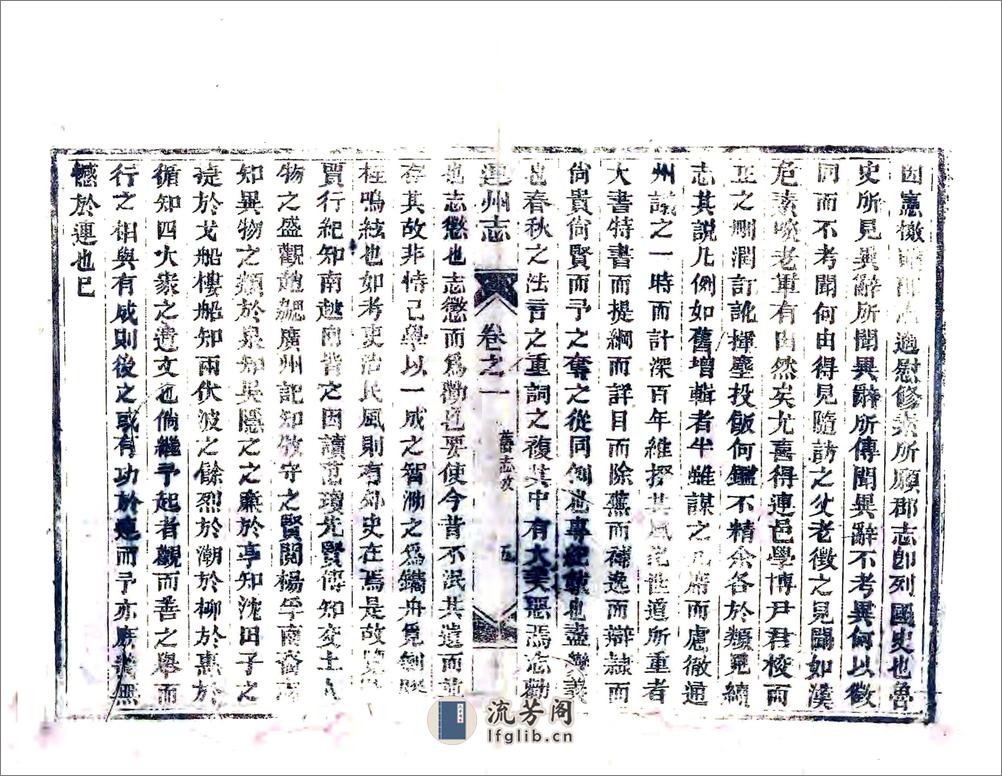 因憲檄 適慰修 所願郡志即列國史也魯
史所見異辭所聞異辭所傳聞異辭不考異何以徵
同而不考聞何由得見隨訪之父老徵之見聞如漢
危素喚老軍有由然矣尤喜得連邑學博尹君校而
正之剛潤訂訛揮麈投飯何鑑不精余各於類見續
志其說凡例如舊增輯者半雖謀之几席而慮徹通
州議之一時而計深百年維撥其風 世道所重者
大書特書而提綱而詳目而除蕪而補逸而辯隷而
尚貴尚賢而予之奪之從同 也專紀 也盡 義
也春秋之法言之重詞之複其中有大美惡焉志勸
連州志
卷之一
舊志攷
五
也志懲也志懲而為勸也要使今昔不泯其遺而並
存其故非恃已學以一成之智泐之為鐫舟見劍
柱鳴絃也如考吏治民風則有郊史在焉是故
賈行紀知南越 皆 因讀范瓊先賢傳知交土人
物之盛觀 勰廣州記知傚守之賢閱楊孚南裔
知異物之類於泉知吳隱之之亷於亭知沈田子之
捷於戈船樓船知兩伏波之餘烈於潮於柳於惠於
循知四大家之遺文也倘繼予起者觀而善之舉而
行之相與有成則後之或有功於連而予亦庶幾無
憾於連也已
流芳阁
lfglib.cn